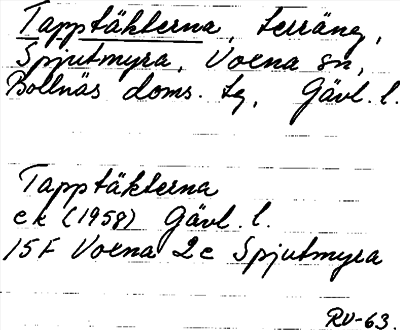 Tapptäkterna, terräng,
Spjutmyra, Voxna sn,
Bollnäs doms. tg, Gävl. l.
Tapptäkterna
ek (1958) Gävl. l.
15F Voxna 2c Spjutmyra
RV-63.